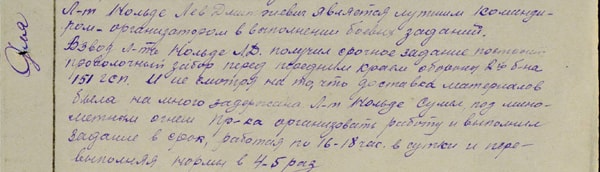 Л-т Нольде Лев Дмитриевич является лучшим команди-
ром-организатором в выполнении боевых заданий.
Взвод Л-та Нольде Л.Д. получил срочное задание
проволочный забор перед передним краем обороны 2го б-на
151 гсп. И не смотря на то, что доставка материалов
была на много задержана Л-т Нольде сумел под мино-
метным огнем пр-ка организовать работу и выполнил
задание в срок, работая по 16-18 час. в сутки и пере-
выполняя нормы в 4-5 раз